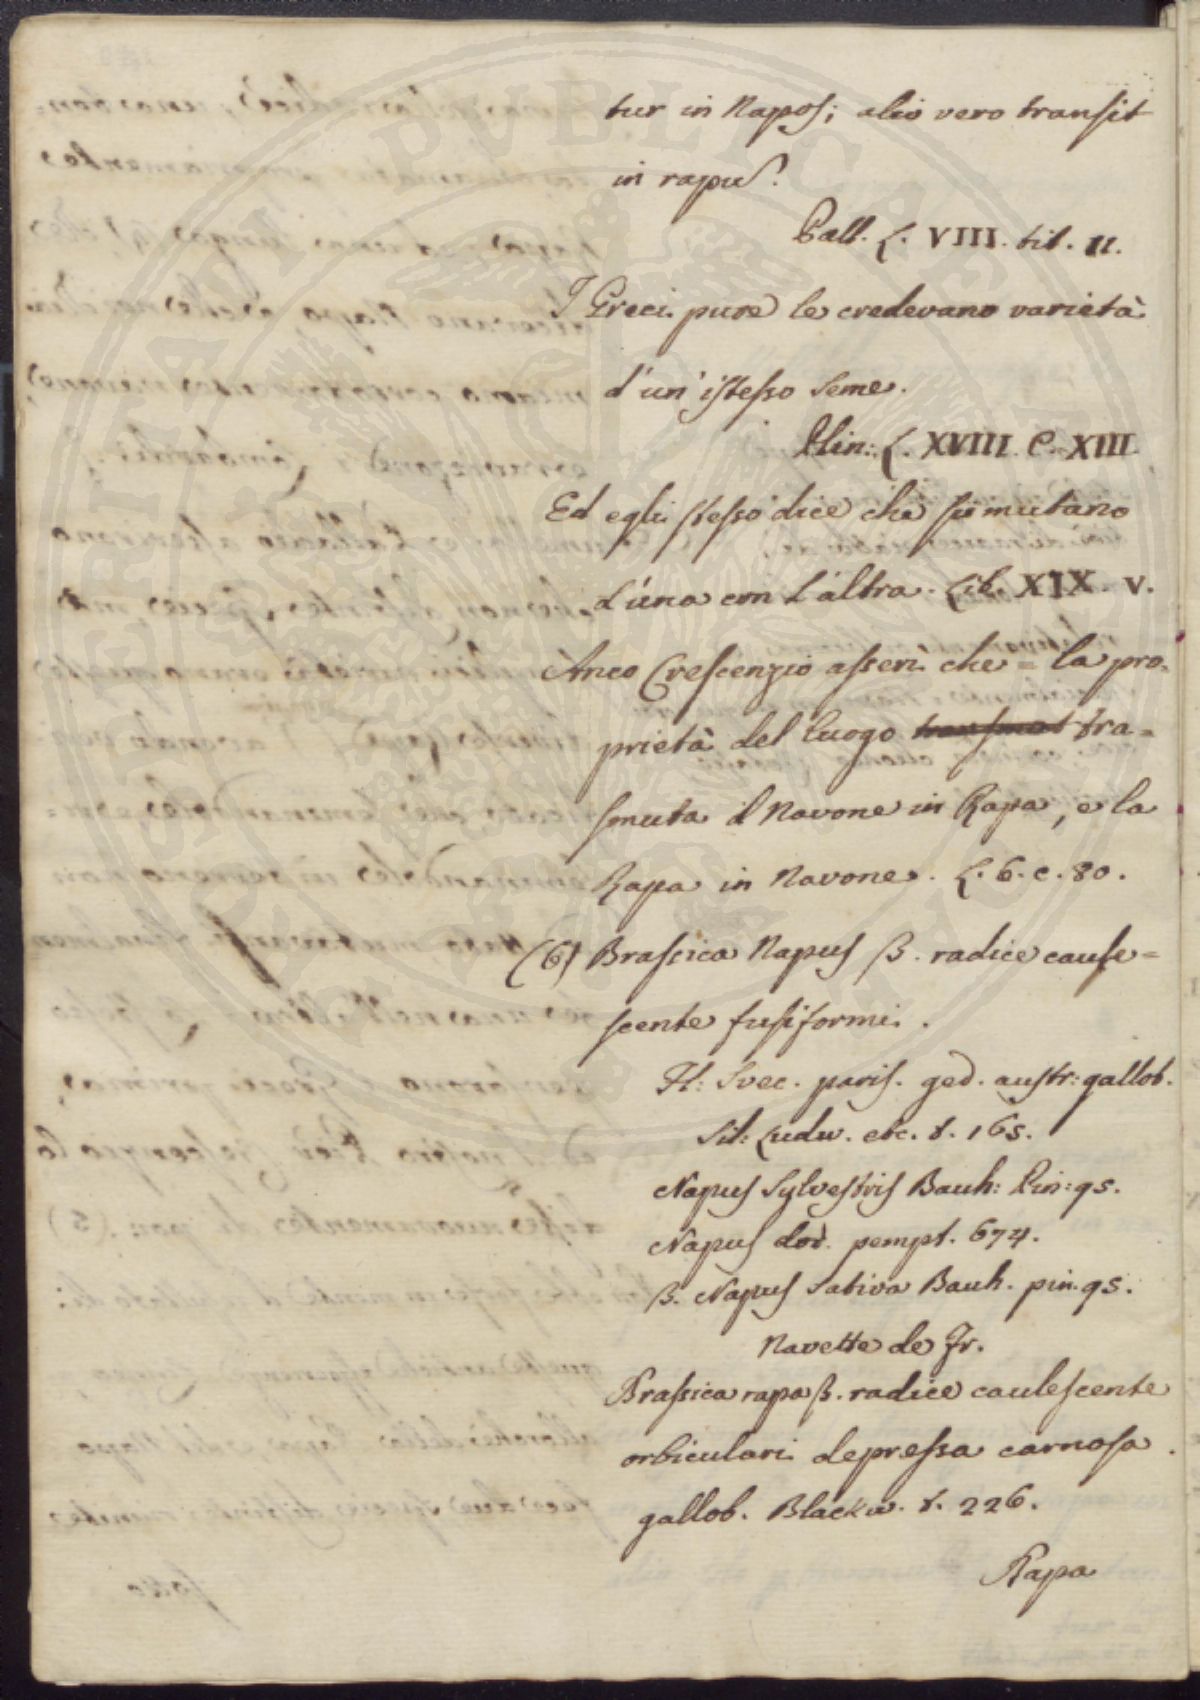 tur in Napos; alio vero transit
in rapus.
Pall. L. VIII. tit. II.
I Greci pure le credevano varietà
d'un' istesso seme.
Plin: L. XVIII. C. XIII
Ed egli stesso dice che si mutano
l'una con l'altra. Lib. XIX. v.
Anco Crescenzio asserì che = la pro-
prietà del luogo transmut tra=
smuta il Navone in Rapa, e la
Rapa in Navone. L. 6. c. 80.
(6) Brassica Napus β. radice caule=
scente fusiformi.
Fl: Svec. paris. ged. austr: gallob.
Sil: Ludw. etc. t. 165.
Napus Sylvestris Bauh: Pin: 95.
Napus dod. pempt. 674.
β. Napus Sativa Bauh. pin. 95.
Navette de Fr.
Brassica rapa β. radice caulescente
orbiculari depressa carnosa.
gallob. Blackw. t. 226.
Rapa